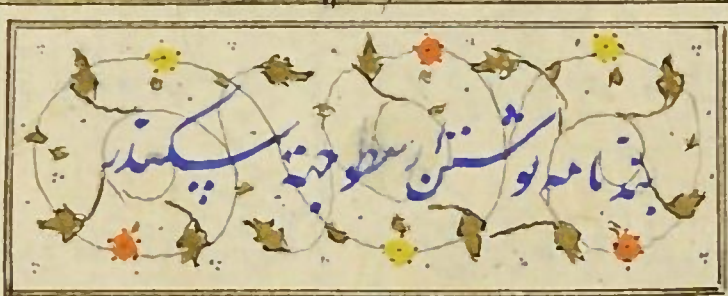 پندنامه نوشتن ارسطو جهة سکندر